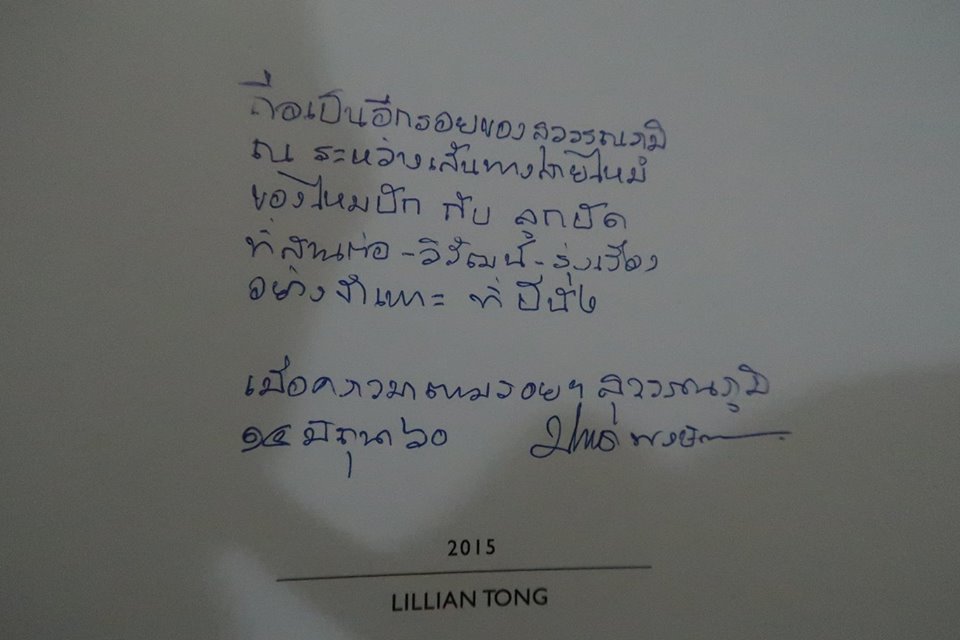 ถือเป็นอีกรอยของสุวรรณภูมิ
ณ ระหว่างเส้นทางสายไหม
ของไหมปัก กับ ลูกปัด
ที่สานต่อ - วิวัฒน์ - รุ่งเรือง
อย่างจำเพาะ ที่ ปีนัง
เมื่อคราวมาตามรอยฯ สุวรรณภูมิ
๑๔ มิถุนา ๖๐
2015
LILLIAN TONG